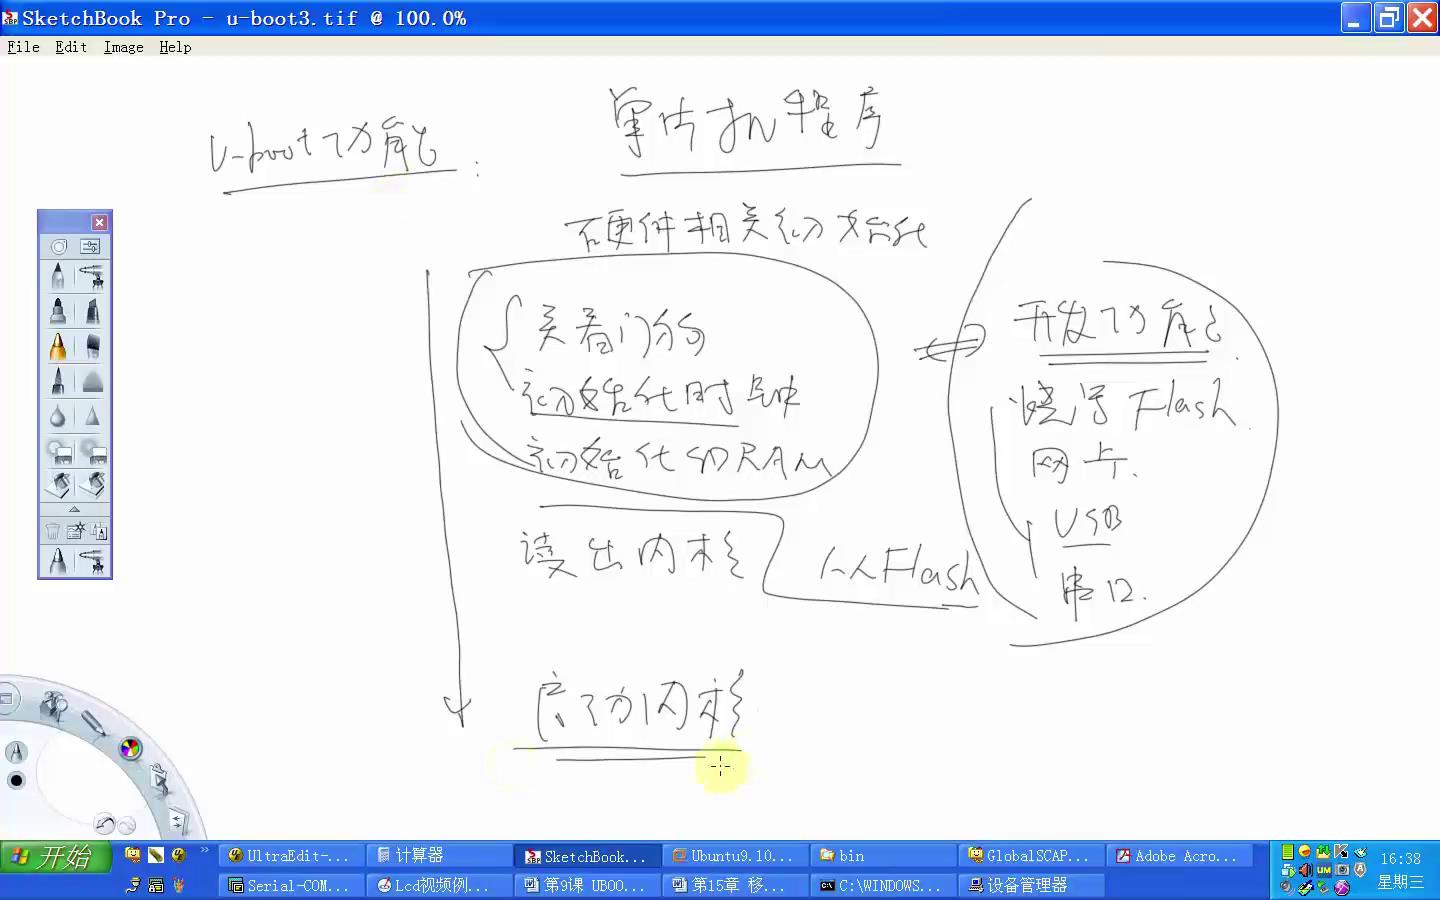 SketchBook Pro - u-boot3.tif @ 100.0%
File Edit Image Help
u-boot功能:
单片机程序
硬件相关初始化
关看门狗
初始化时钟
初始化SDRAM
读出内核
从Flash
启动内核
开发功能.
烧写Flash.
网卡.
USB
串口.
开始
UltraEdit-...
计算器
SketchBook...
Ubuntu9.10...
bin
GlobalSCAP...
Adobe Acro...
16:38
Serial-COM...
Lcd视频例...
第9课 UBOO...
第15章 移...
C:\WINDOWS...
设备管理器
星期三